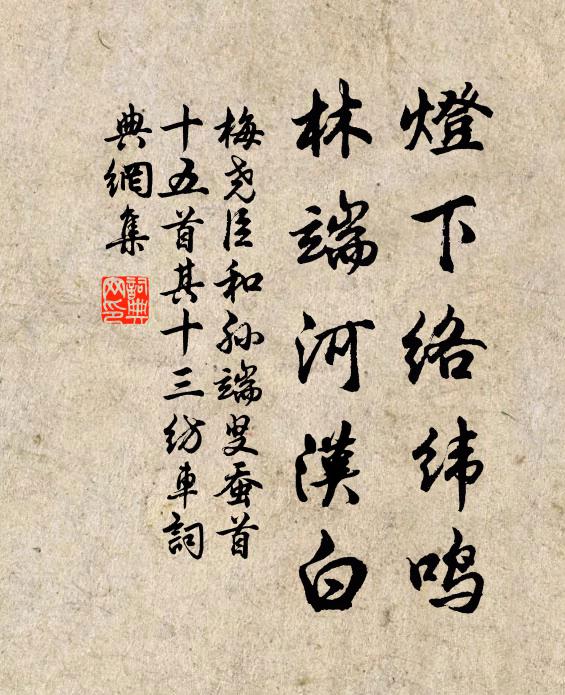 燈下络纬鸣
林端河漢白
梅尧臣和孙端叟蚕首
十五首其十三纺車詞
典網集
詞典
网印